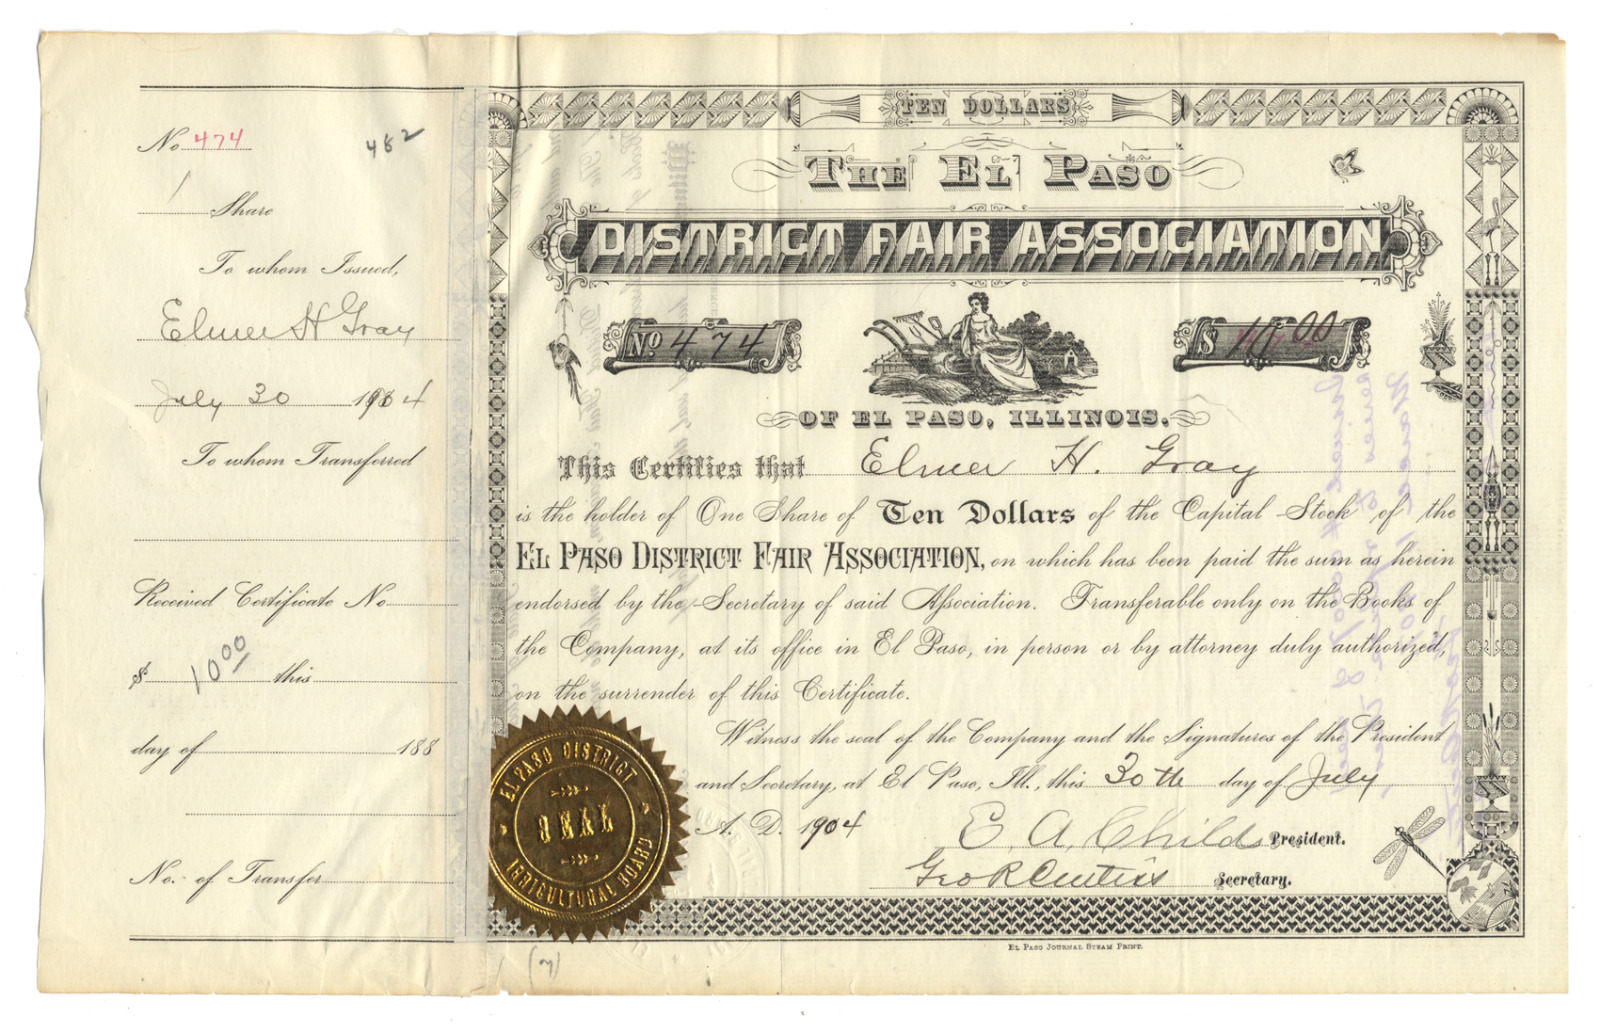 No 474
482
1 Share
To whom Issued,
Elmer H Gray
July 30 1904
To whom Transferred
Received Certificate No
$ 10.00 this
day of 188
No. of Transfer
TEN DOLLARS
THE EL PASO
DISTRICT FAIR ASSOCIATION
No 474
$ 10.00
OF EL PASO, ILLINOIS.
This Certifies that Elmer H. Gray
is the holder of One Share of Ten Dollars of the Capital Stock of the
EL PASO DISTRICT FAIR ASSOCIATION, on which has been paid the sum as herein
endorsed by the Secretary of said Association. Transferable only on the Books of
the Company, at its office in El Paso, in person or by attorney duly authorized,
on the surrender of this Certificate.
Witness the seal of the Company and the Signatures of the President
and Secretary, at El Paso, Ill., this 30th day of July
A. D. 1904
E. A. Childs President.
Geo R Curtiss Secretary.
EL PASO DISTRICT
SEAL
AGRICULTURAL BOARD
EL PASO JOURNAL STEAM PRINT.